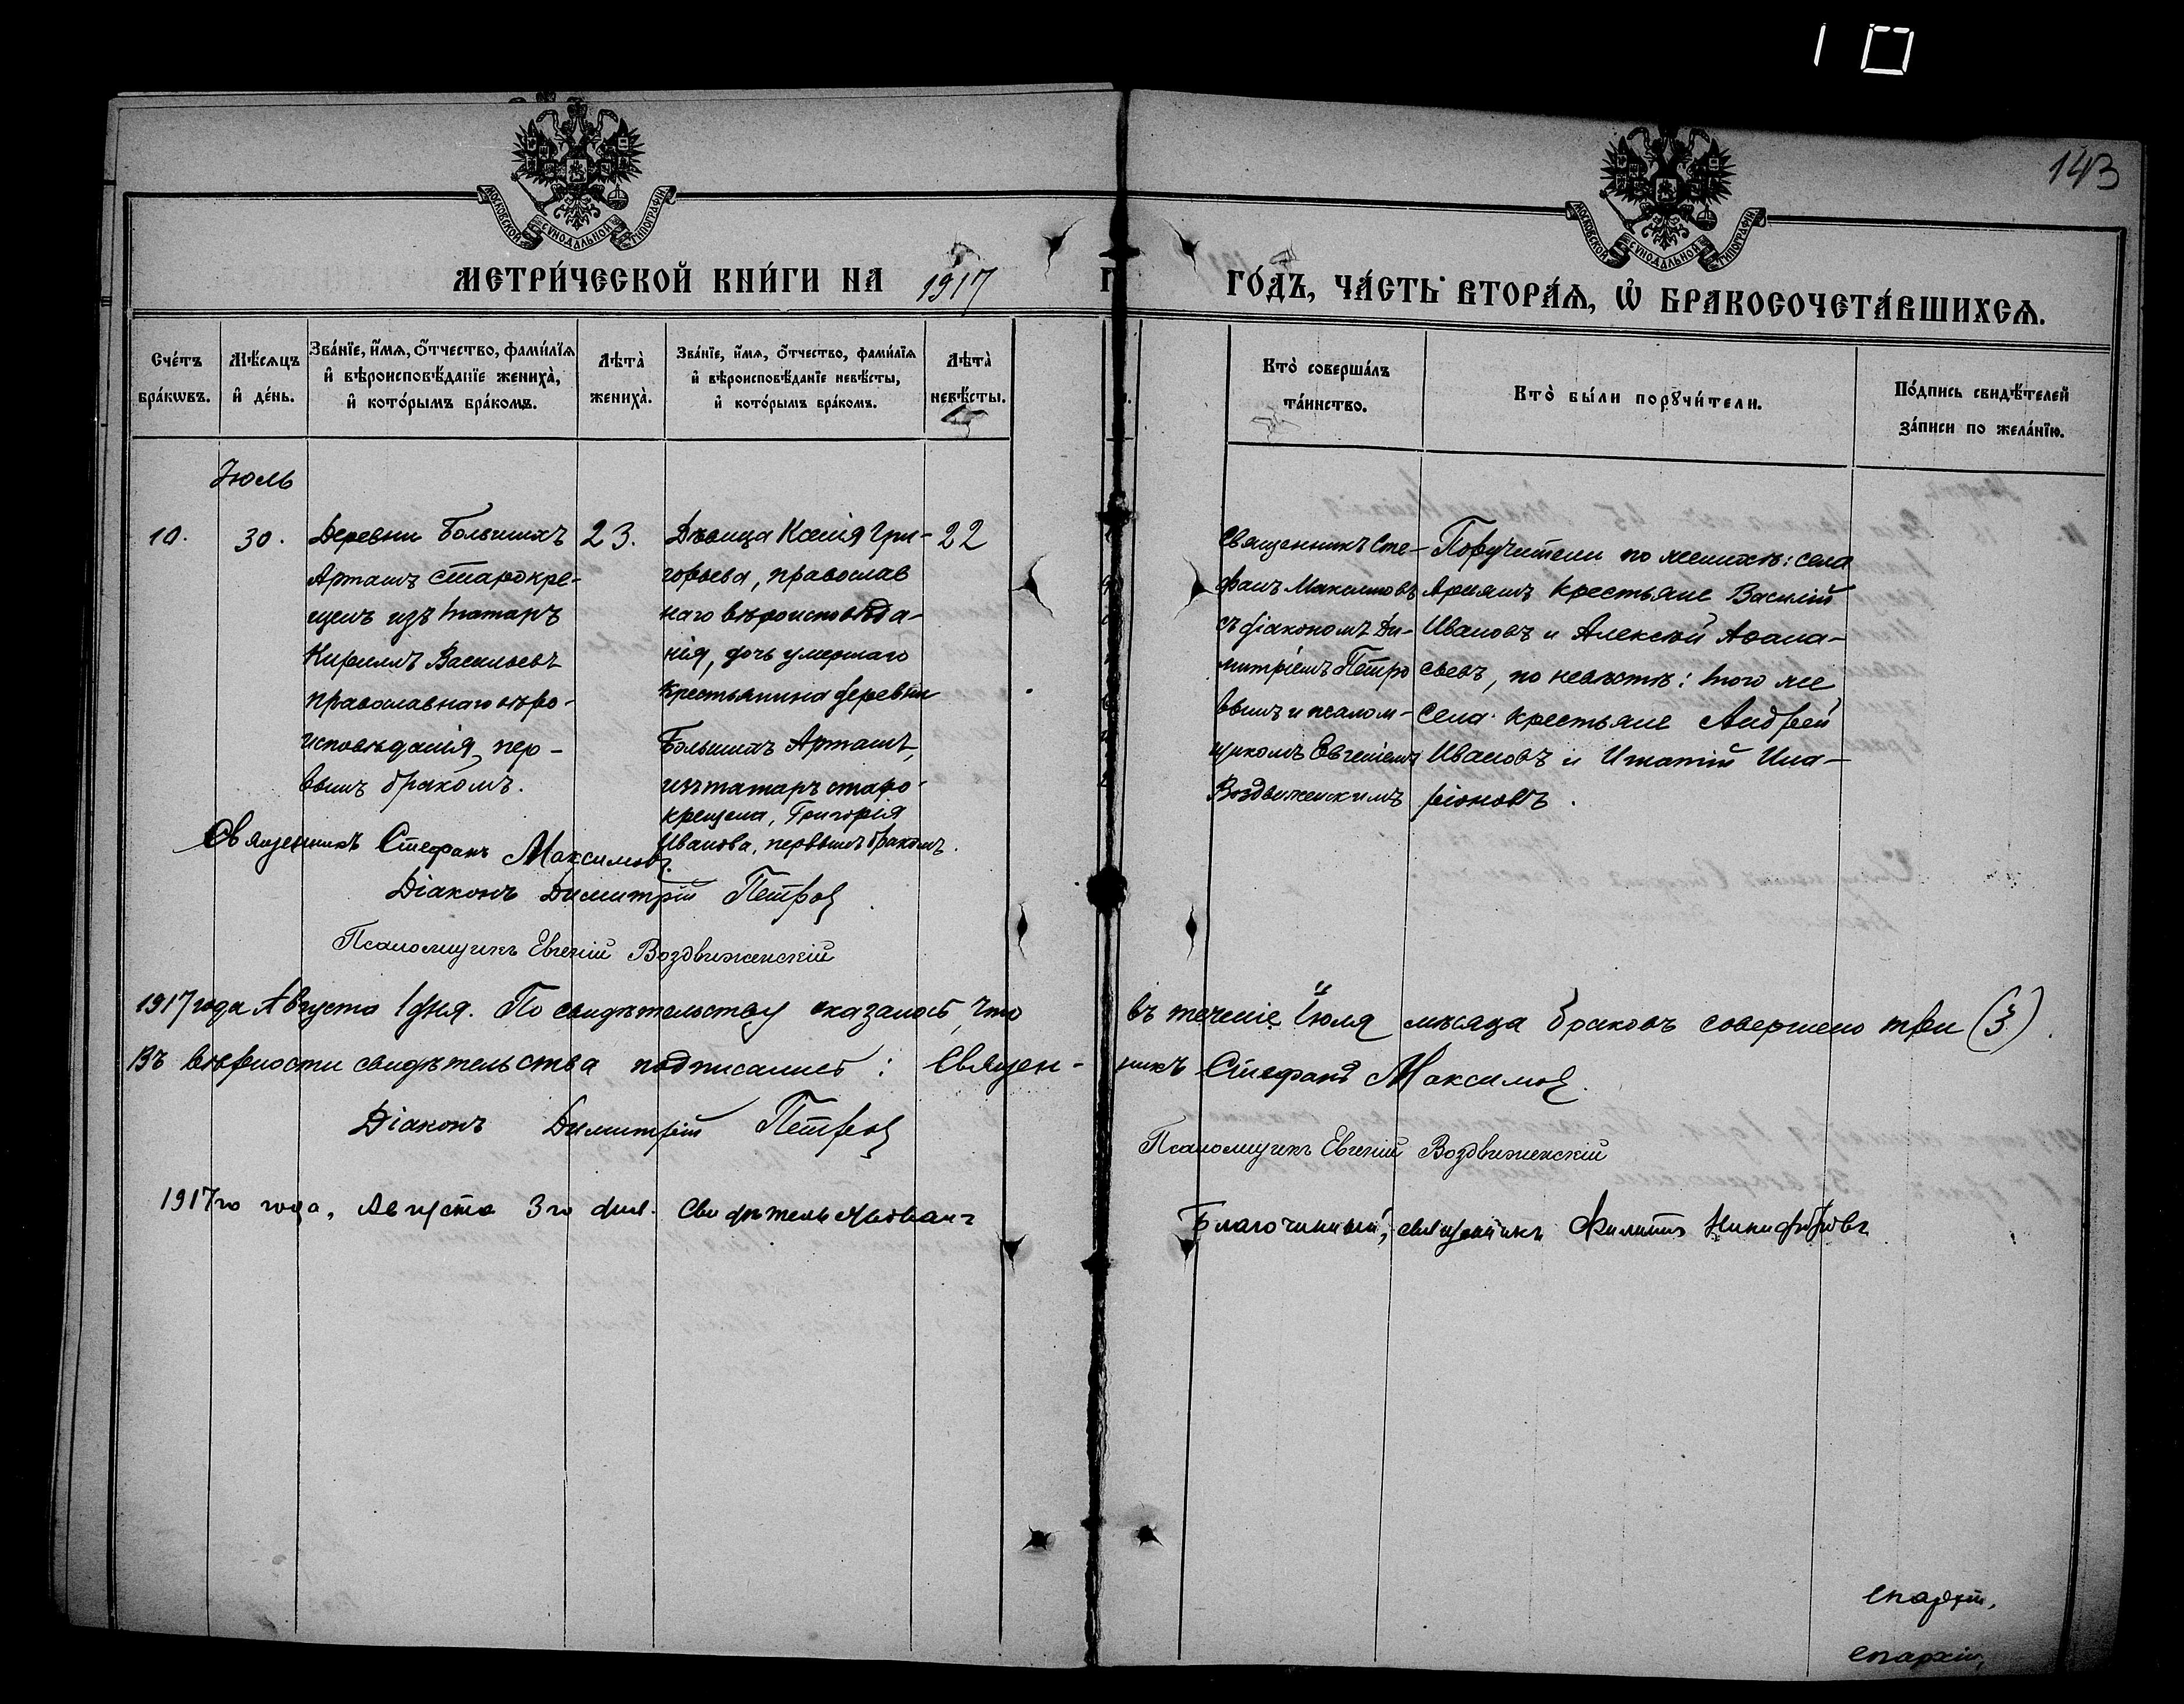 143
МОСКОВСКОЙ СѴНОДАЛЬНОЙ ТИПОГРАФІИ
МОСКОВСКОЙ СѴНОДАЛЬНОЙ ТИПОГРАФІИ
МЕТРИ́ЧЕСКОЙ КНИ́ГИ НА 1917
ГО́ДЪ, ЧА́СТЬ ВТОРА́Ѧ, Ѡ҆ БРАКОСОЧЕТА́ВШИХСѦ.
Сче́тъ
бра́кѡвъ.
Мѣ́сѧцъ
и҆ де́нь.
Зва́нїе, и҆́мѧ, ѻ҆́тчество, фами́лїѧ
и҆ вѣроисповѣ́данїе жениха̀,
и҆ кото́рымъ бра́комъ.
Лѣта̀
жениха̀.
Зва́нїе, и҆́мѧ, ѻ҆́тчество, фами́лїѧ
и҆ вѣроисповѣ́данїе невѣ́сты,
и҆ кото́рымъ бра́комъ.
Лѣта̀
невѣ́сты.
Кто̀ соверша́лъ
та́инство.
Кто̀ бы́ли порꙋчи́тели.
По́дпись свидѣ́телей
за́писи по жела́нїю.
Іюль
10.
30.
Деревни Большихъ
Арташъ старокре-
щенъ изъ татаръ
Кириллъ Васильевъ
православнаго вѣро-
исповѣданія, пер-
вымъ бракомъ.
23.
Дѣвица Ксенія Гри-
горьева, православ
наго вѣроисповѣда-
нія, дочь умершаго
крестьянина деревни
Большихъ Арташъ,
изъ татаръ старо-
крещена, Григорія
Иванова, первымъ бракомъ.
22
Священникъ Сте-
фанъ Максимовъ
съ діакономъ Ди-
митріемъ Петро
вымъ и псалом-
щикомъ Евгеніемъ
Воздвиженскимъ
Поручители по женихѣ: села
крестьяне Василій
Ивановъ и Алексѣй Аѳана-
сьевъ, по невѣстѣ: того же
села крестьяне Андрей
Ивановъ и Игнатій Ила-
ріоновъ.
Священникъ Стефанъ Максимовъ.
Діаконъ Димитрій Петровъ.
Псаломщикъ Евгеній Воздвиженскій
1917 года Августа 1 дня. По свидѣтельству оказалось, что въ теченіе Іюля мѣсяца браковъ совершено три (3).
Въ вѣрности свидѣтельства подписались: Священ-никъ Стефанъ Максимовъ.
Діаконъ Димитрій Петровъ
Псаломщикъ Евгеній Воздвиженскій
1917го года, Августа 3го дня. Свидѣтельствовалъ Благочинный, священникъ Филиппъ Никифоровъ
епархіи,
епархіи,